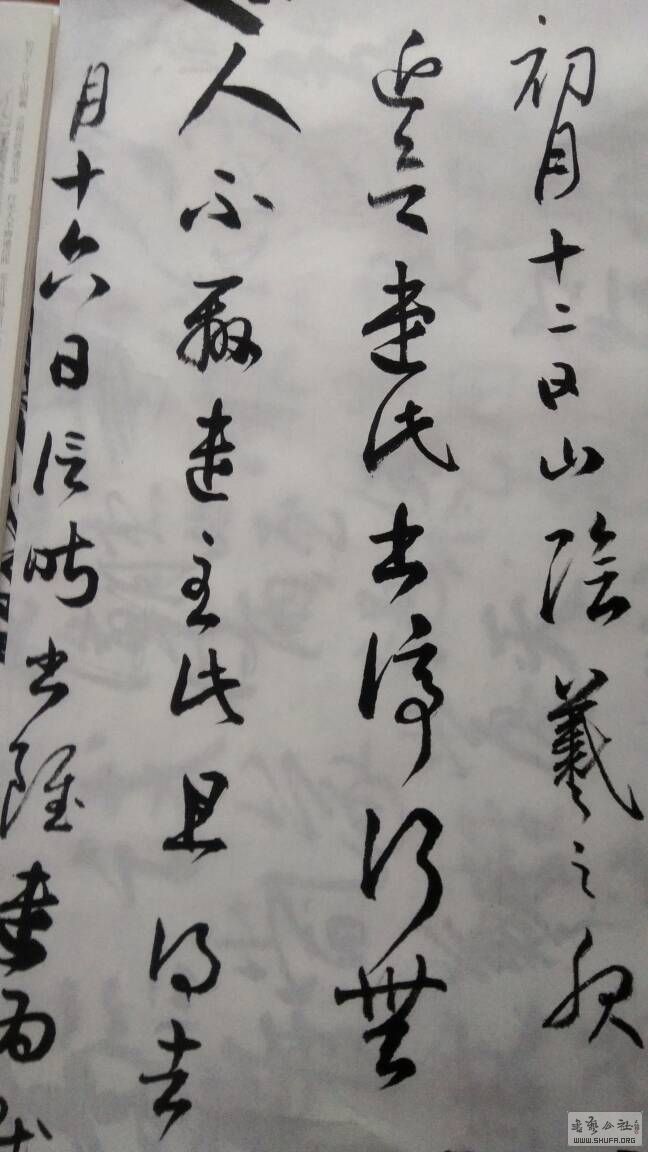 初月十二日山陰羲之報
近欲遣此書停行無
人不辦遣主此且得去
月十六日信時書雖遠為慰
書藝公社
WWW.SHUFA.ORG